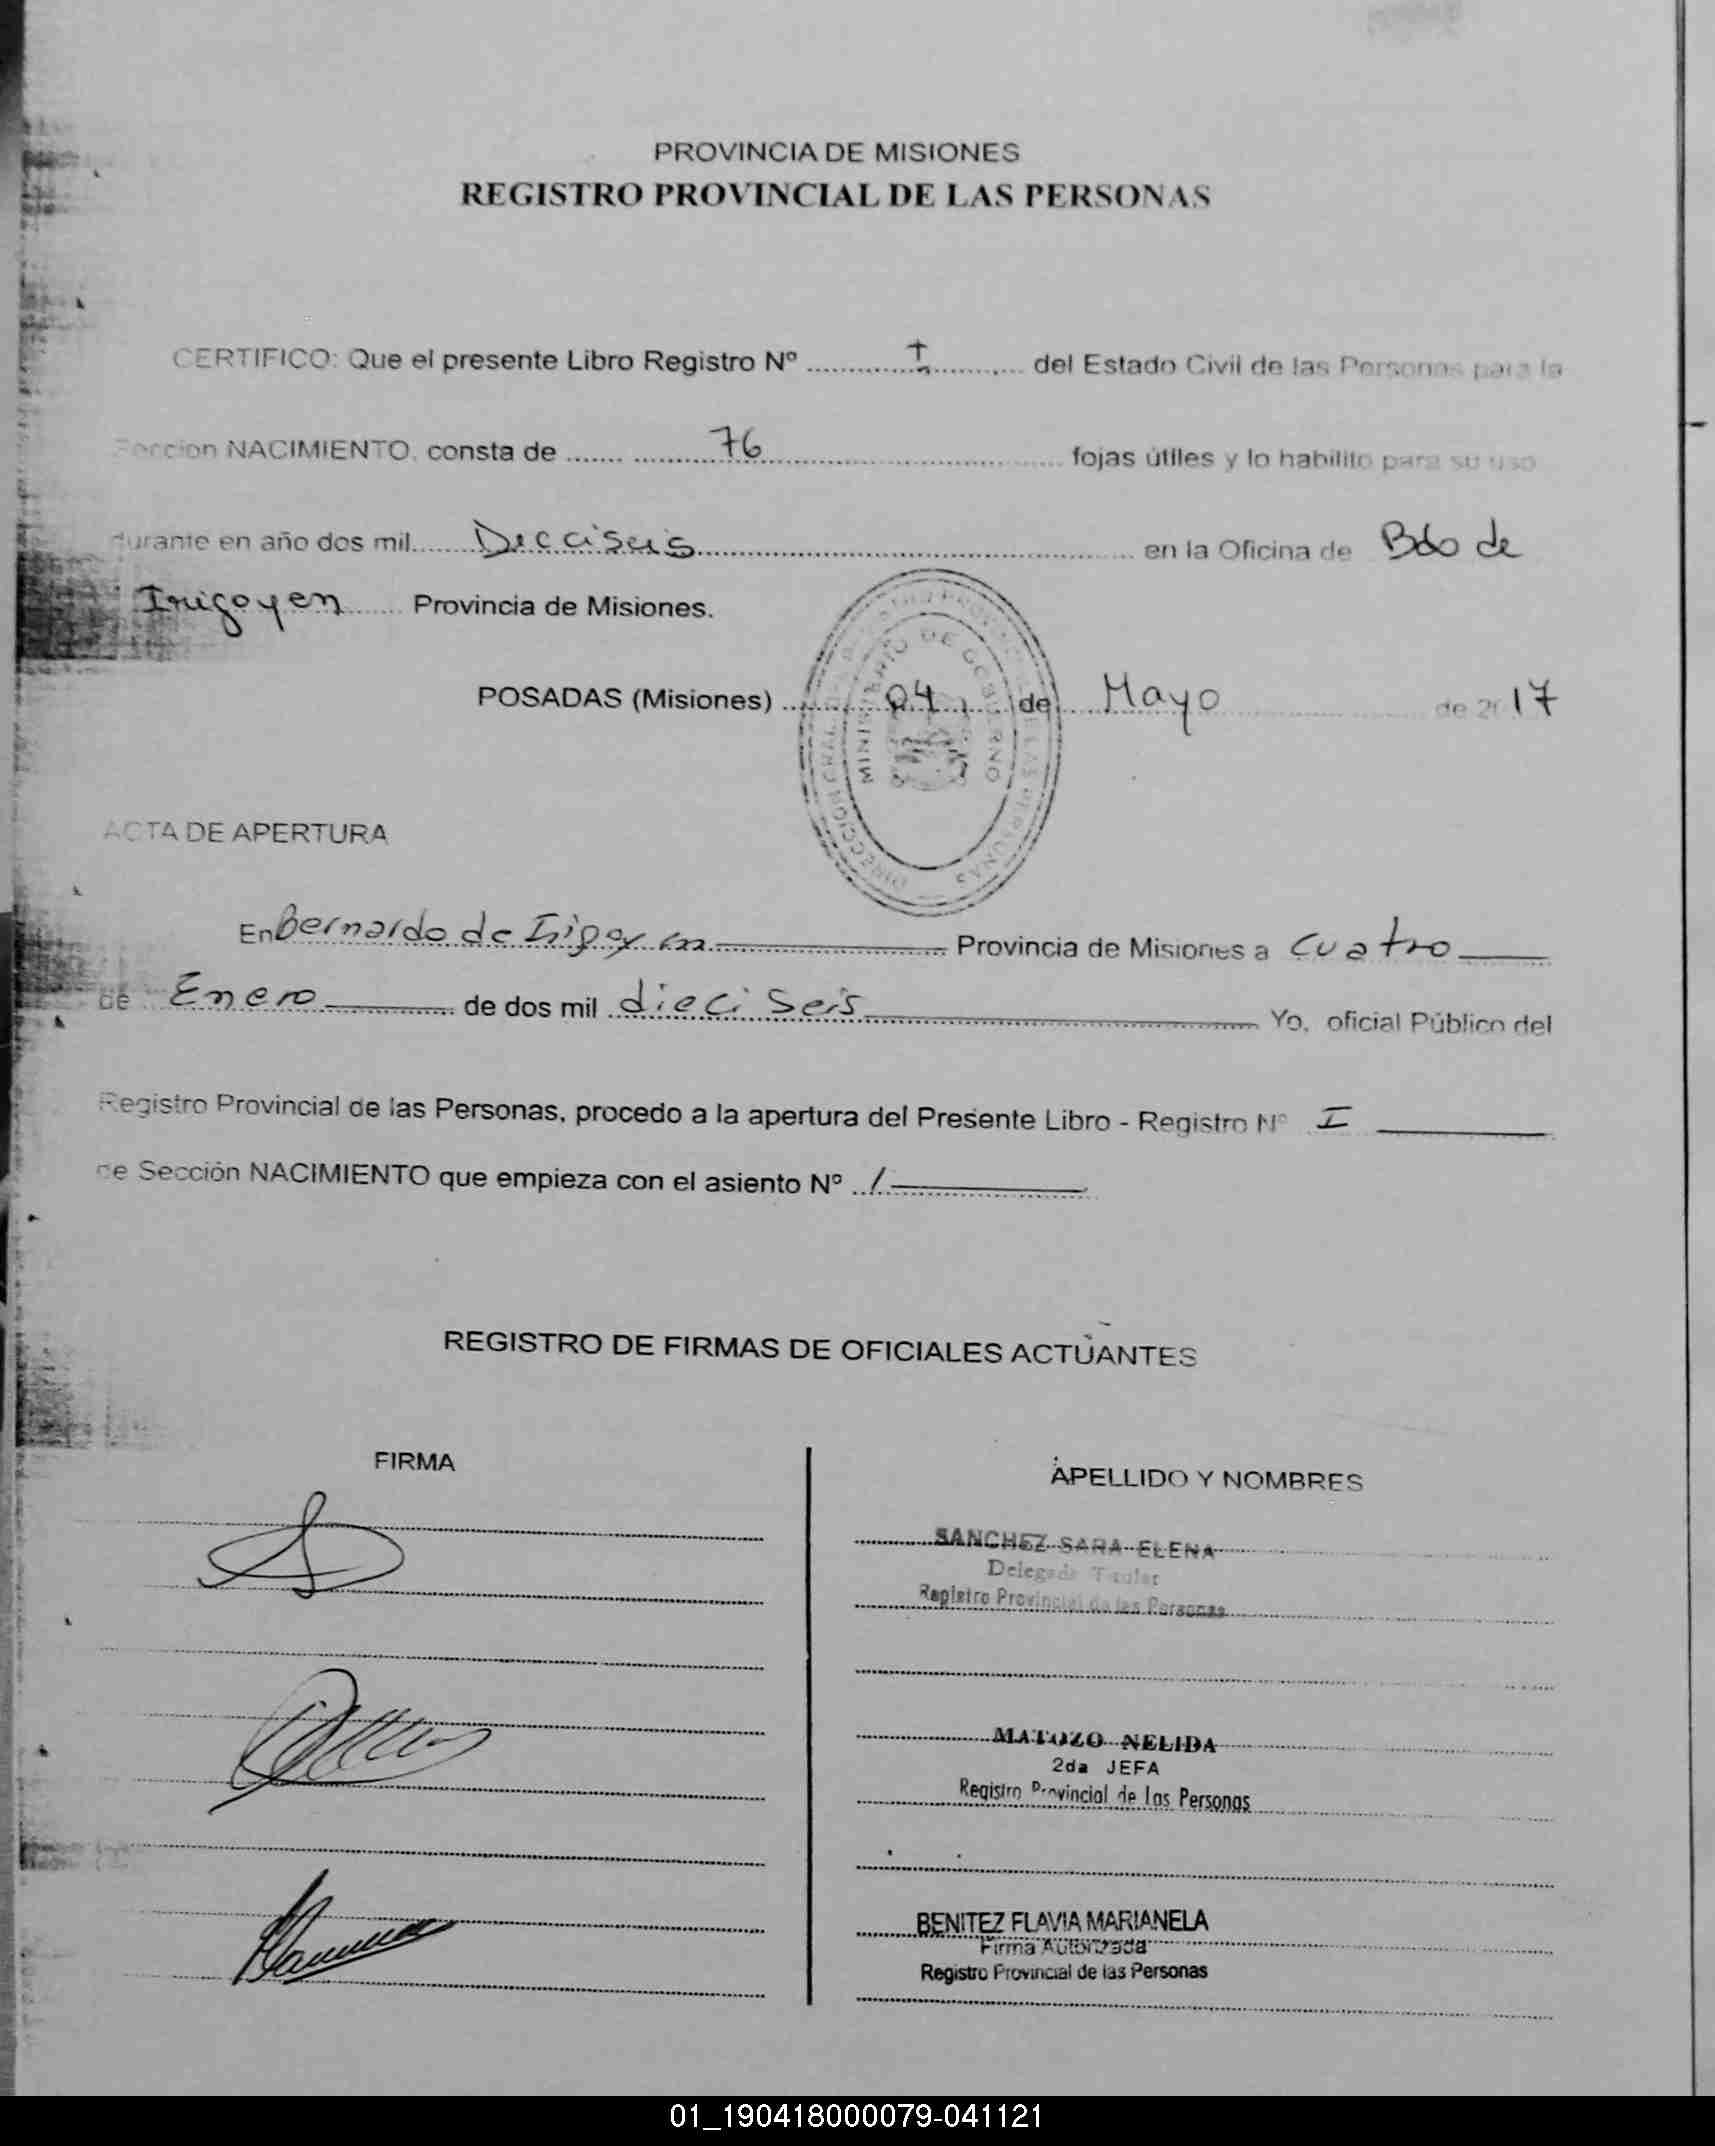 PROVINCIA DE MISIONES
REGISTRO PROVINCIAL DE LAS PERSONAS
CERTIFICO: Que el presente Libro Registro Nº I del Estado Civil de las Personas para la
Sección NACIMIENTO, consta de 76 fojas útiles y lo habilito para su uso
durante en año dos mil Decciseis en la Oficina de Bdo de
Irigoyen Provincia de Misiones.
POSADAS (Misiones) 04 de Mayo de 2017
DIRECCION GRAL. REGISTRO PROVINCIAL DE LAS PERSONAS
MINISTERIO DE GOBIERNO
ACTA DE APERTURA
En Bernardo de Irigoyen Provincia de Misiones a cuatro
de Enero de dos mil dieciseis Yo, oficial Público del
Registro Provincial de las Personas, procedo a la apertura del Presente Libro - Registro Nº I
de Sección NACIMIENTO que empieza con el asiento Nº 1
REGISTRO DE FIRMAS DE OFICIALES ACTUANTES
FIRMA
APELLIDO Y NOMBRES
SANCHEZ SARA ELENA
Delegada Titular
Registro Provincial de las Personas
MATOZO NELIDA
2da JEFA
Registro Provincial de las Personas
BENITEZ FLAVIA MARIANELA
Firma Autorizada
Registro Provincial de las Personas
01_190418000079-041121